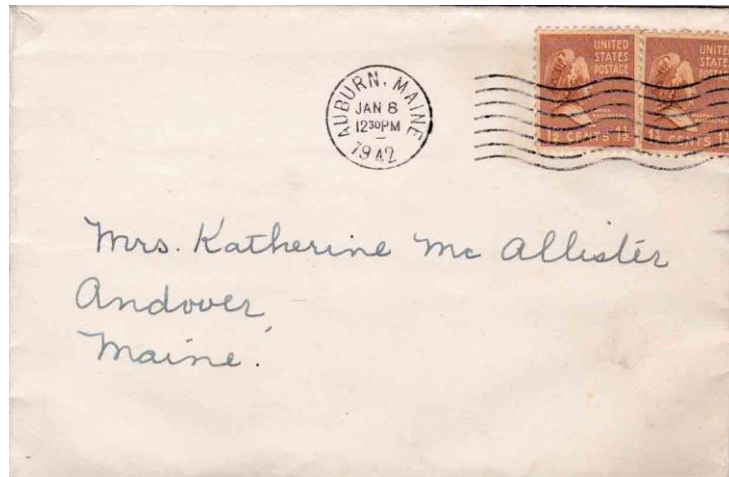 AUBURN, MAINE
JAN 8
12 30 PM
1942
UNITED
STATES
POSTAGE
1½ CENTS 1½
UNITED
STATES
POSTAGE
1½ CENTS 1½
Mrs. Katherine Mc Allister
Andover
Maine.